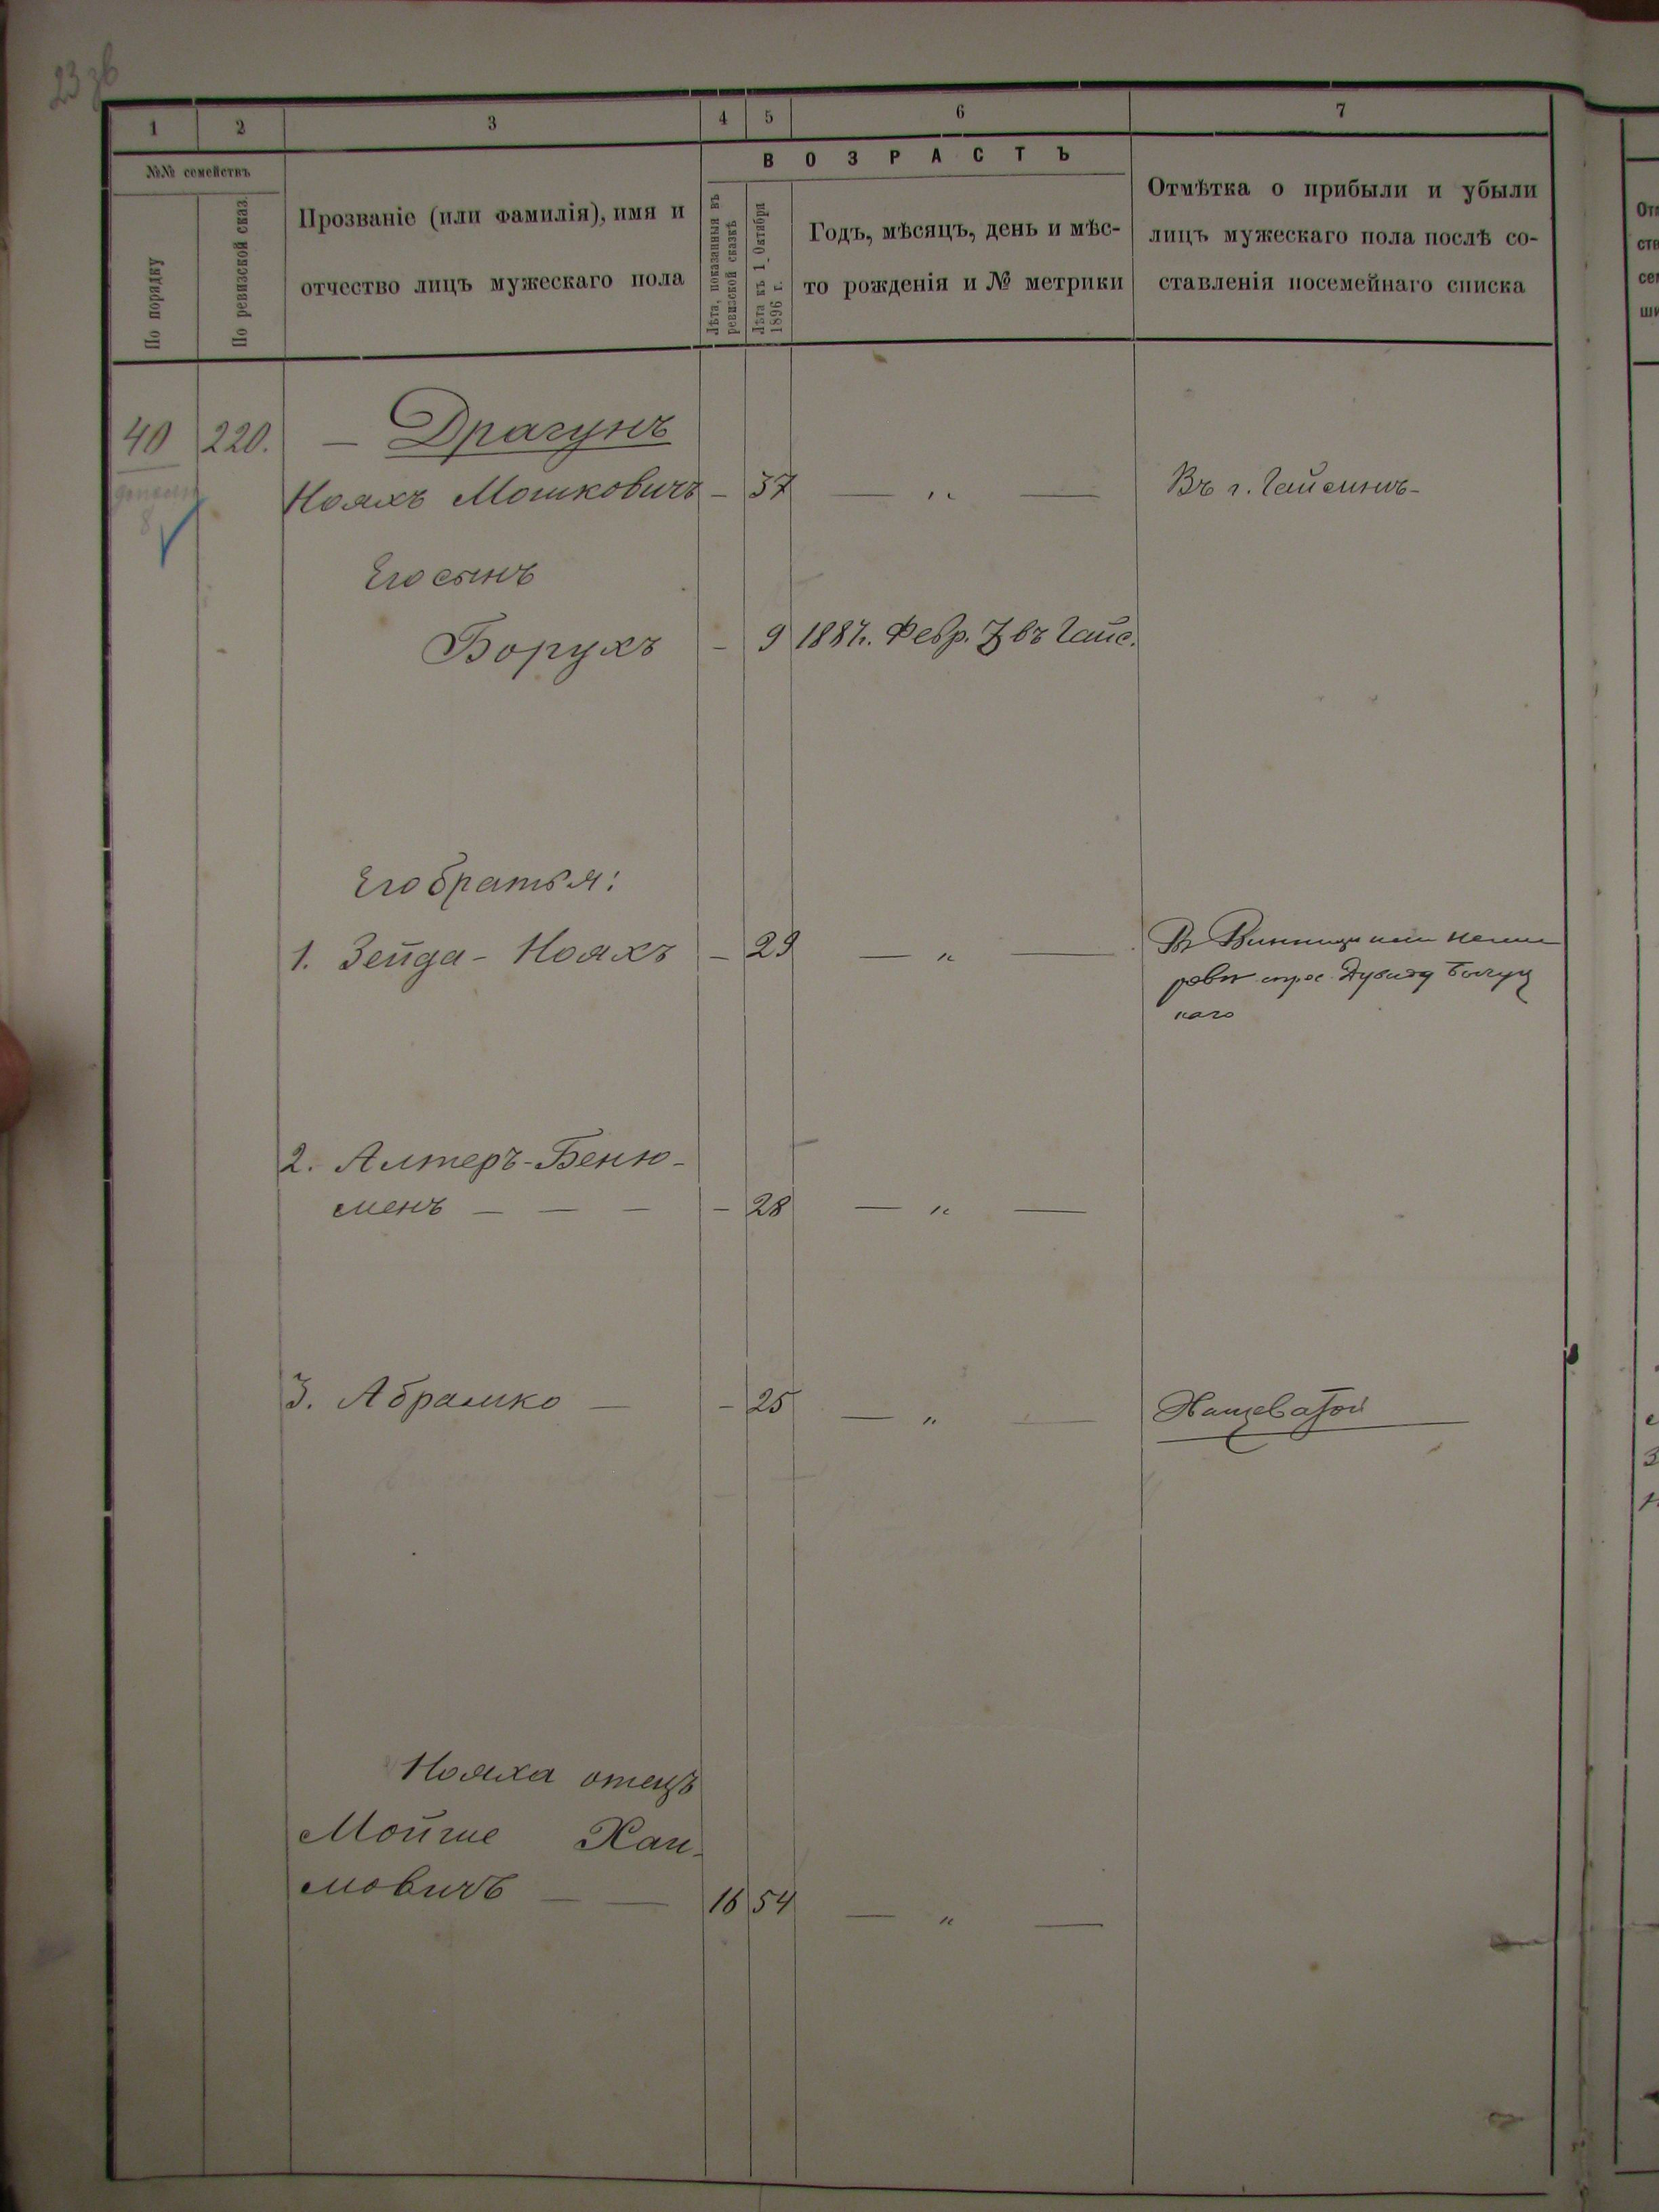 23 зв
1 2 3 4 5 6 7
№№ семействъ
По порядку
По ревизской сказ.
Прозваніе (или фамилія), имя и
отчество лицъ мужескаго пола
ВОЗРАСТЪ
Лѣта, показанныя въ
ревизской сказкѣ
Лѣта къ 1 Октября
1896 г.
Годъ, мѣсяцъ, день и мѣс-
то рожденія и № метрики
Отмѣтка о прибыли и убыли
лицъ мужескаго пола послѣ со-
ставленія посемейнаго списка
40 220. — Драгунъ
Ноахъ Мошковичъ - 37 — „ — Въ г. Гайсинъ-
8
Его сынъ
Борухъ - 9 1887г. Февр. 7 въ Гайс.
Его братья:
1. Зейда - Ноахъ - 29 — „ —
Въ
каго
2. Алтеръ-Беню-
менъ — — — - 28 — „ —
3. Абрамко — - 25 — „ — Хащеватой
Ноаха отецъ
Мойше Хаи-
мовичъ — — 16 54 — „ —